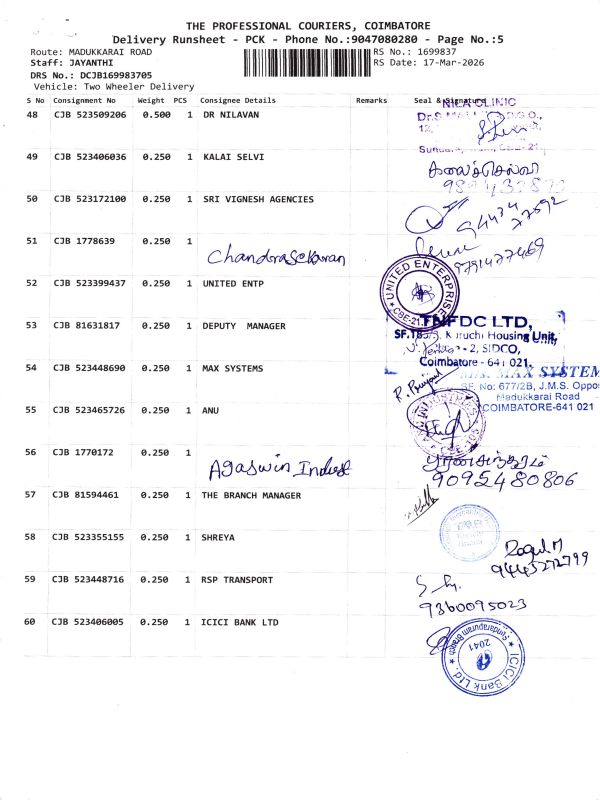 THE PROFESSIONAL COURIERS, COIMBATORE
Delivery Runsheet - PCK - Phone No.:9047080280 - Page No.:5
Route: MADUKKARAI ROAD
RS No.: 1699837
Staff: JAYANTHI
RS Date: 17-Mar-2026
DRS No.: DCJB169983705
Vehicle: Two Wheeler Delivery
S No Consignment No Weight PCS Consignee Details Remarks Seal & Signature
48 CJB 523509206 0.500 1 DR NILAVAN
CLINIC
49 CJB 523406036 0.250 1 KALAI SELVI
கலைச்செல்வி
50 CJB 523172100 0.250 1 SRI VIGNESH AGENCIES
94434
77592
51 CJB 1778639 0.250 1 Chandrasekaran
9791477469
52 CJB 523399437 0.250 1 UNITED ENTP
UNITED ENTERPRISES
CBE-21
53 CJB 81631817 0.250 1 DEPUTY MANAGER
TNFDC LTD,
Kuruchi Housing Unit,
SIDCO,
Coimbatore - 641 021.
54 CJB 523448690 0.250 1 MAX SYSTEMS
M/s. MAX SYSTEM
SF. No: 677/2B, J.M.S. Oppos
Madukkarai Road
COIMBATORE-641 021
55 CJB 523465726 0.250 1 ANU
56 CJB 1770172 0.250 1 Agaswin Indust
9095480806
57 CJB 81594461 0.250 1 THE BRANCH MANAGER
58 CJB 523355155 0.250 1 SHREYA
Ragul M
9445272799
59 CJB 523448716 0.250 1 RSP TRANSPORT
9360095023
60 CJB 523406005 0.250 1 ICICI BANK LTD
ICICI Bank Ltd.
Sundarapuram Branch
2041